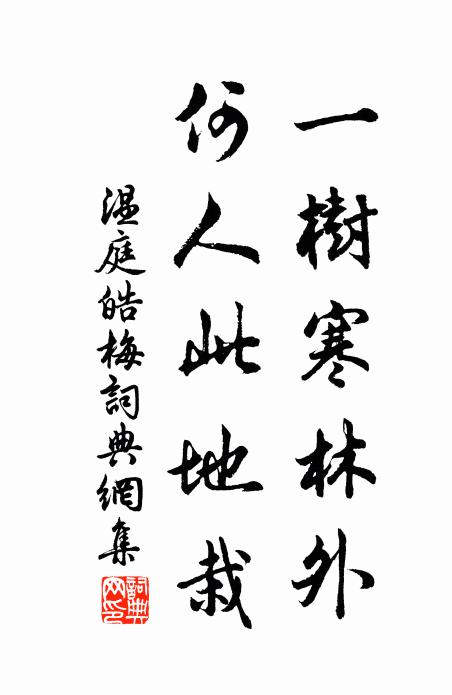 一樹寒林外
何人此地栽
温庭皓梅詞典網集
詞典網印